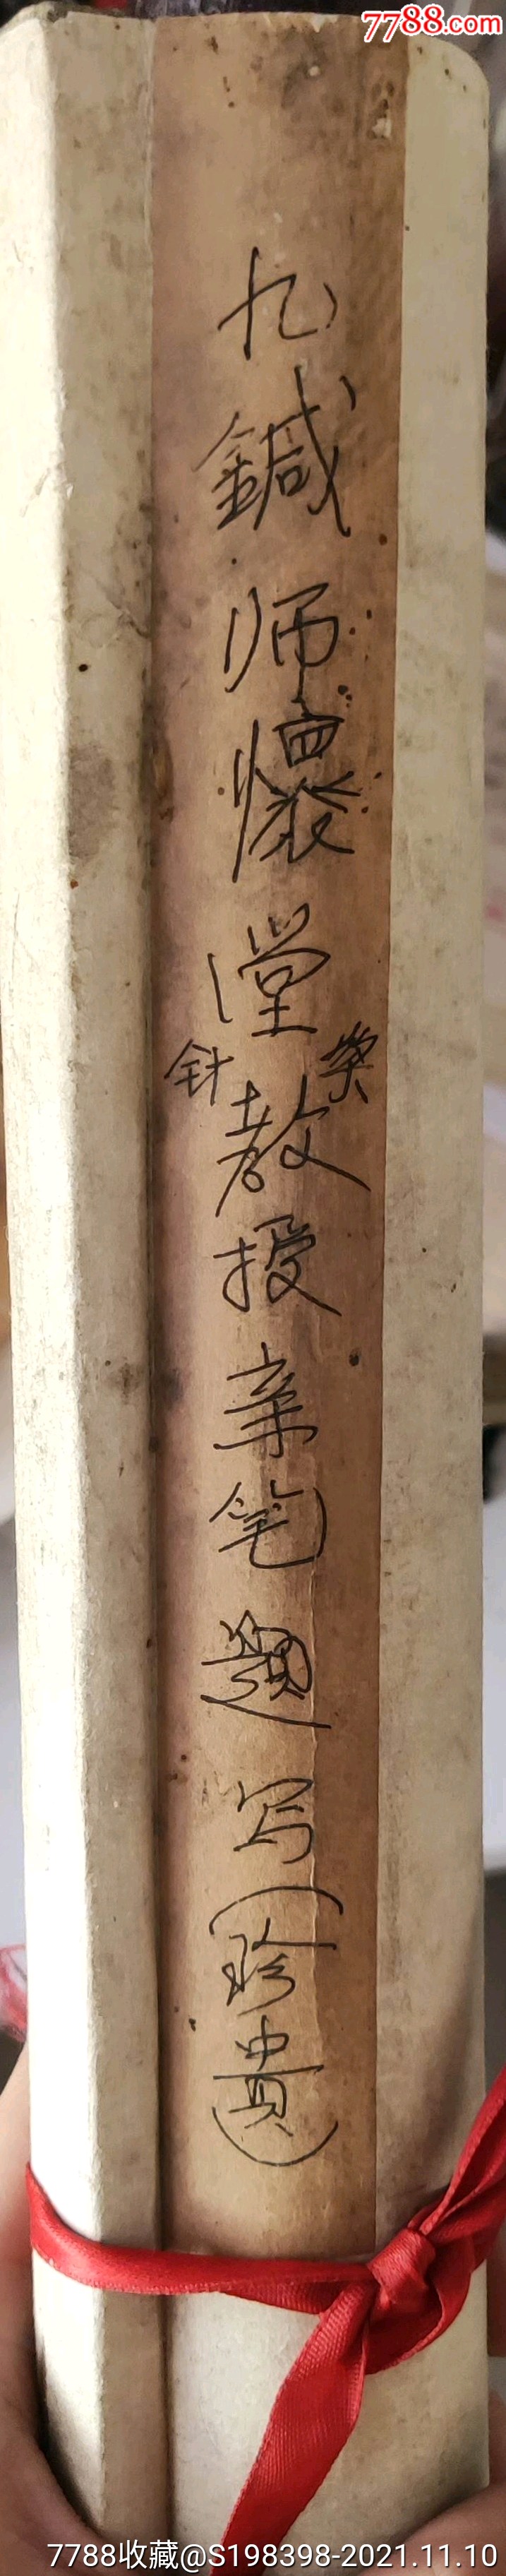 7788.com
九鍼师懷堂教授亲笔题写(珍貴)
针
7788收藏@S198398-2021.11.10